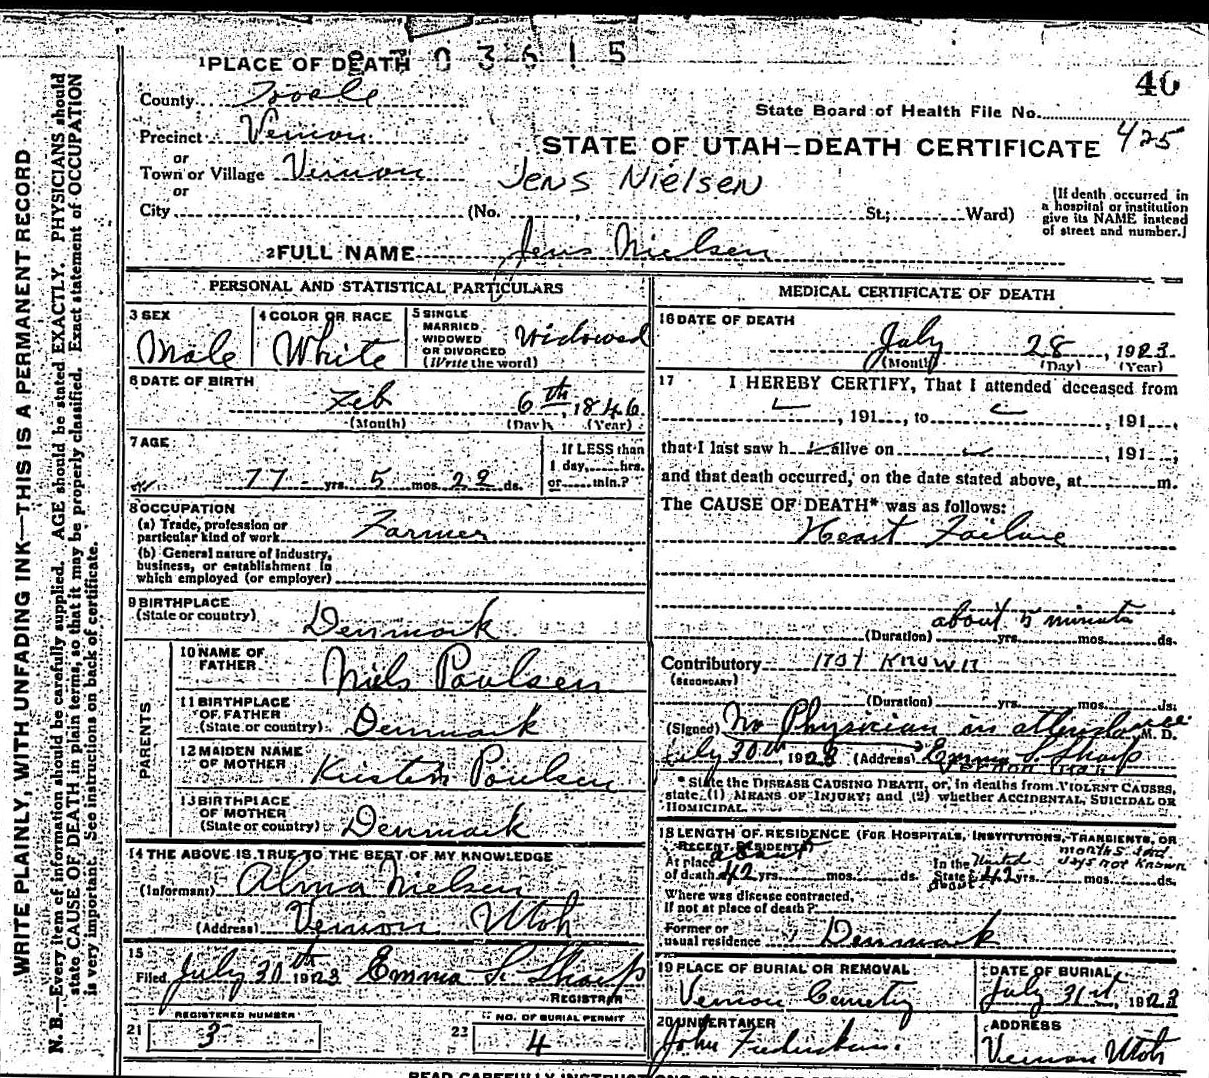 1 PLACE OF DEATH
8703615
46
County Tooele
State Board of Health File No.
Precinct Vernon
STATE OF UTAH—DEATH CERTIFICATE 425
or
Town or Village Vernon
Jens Nielsen
or
City (No. , St.; Ward)
(If death occurred in a hospital or institution give its NAME instead of street and number.)
2 FULL NAME Jens Nielsen
PERSONAL AND STATISTICAL PARTICULARS
3 SEX
Male
4 COLOR OR RACE
White
5 SINGLE
MARRIED
WIDOWED
OR DIVORCED
(Write the word)
Widowed
6 DATE OF BIRTH
Feb 6th, 1846
(Month) (Day) (Year)
7 AGE
77 yrs. 5 mos. 22 ds.
If LESS than
1 day, hrs.
or min.?
8 OCCUPATION
(a) Trade, profession or
particular kind of work Farmer
(b) General nature of industry,
business, or establishment in
which employed (or employer)
9 BIRTHPLACE
(State or country) Denmark
PARENTS
10 NAME OF
FATHER Niels Poulsen
11 BIRTHPLACE
OF FATHER
(State or country) Denmark
12 MAIDEN NAME
OF MOTHER Kirsten Poulsen
13 BIRTHPLACE
OF MOTHER
(State or country) Denmark
14 THE ABOVE IS TRUE TO THE BEST OF MY KNOWLEDGE
(Informant) Alma Nielsen
(Address) Vernon Utah
15
Filed July 30th 1923 Emma S. Sharp
REGISTRAR
REGISTERED NUMBER
21 3
NO. OF BURIAL PERMIT
23 4
MEDICAL CERTIFICATE OF DEATH
16 DATE OF DEATH
July 28, 1923
(Month) (Day) (Year)
17 I HEREBY CERTIFY, That I attended deceased from
, 191 , to , 191 ,
that I last saw h alive on , 191 ,
and that death occurred, on the date stated above, at m.
The CAUSE OF DEATH* was as follows:
Heart Failure
about 5 minuts
(Duration) yrs. mos. ds.
Contributory not Known
(SECONDARY)
(Duration) yrs. mos. ds.
(Signed) No Physician in attendance M. D.
July 30th, 1923 (Address) Emma S. Sharp
Vernon Utah
* State the DISEASE CAUSING DEATH, or, in deaths from VIOLENT CAUSES,
state (1) MEANS OF INJURY; and (2) whether ACCIDENTAL, SUICIDAL OR
HOMICIDAL.
18 LENGTH OF RESIDENCE (FOR HOSPITALS, INSTITUTIONS, TRANSIENTS, OR
RECENT RESIDENTS)
about
months and
days not known
At place
of death 42 yrs. mos. ds.
In the United
State s about 42 yrs. mos. ds.
Where was disease contracted,
If not at place of death?
Former or
usual residence Denmark
19 PLACE OF BURIAL OR REMOVAL
Vernon Cemetry
DATE OF BURIAL
July 31st, 1923
20 UNDERTAKER
John
ADDRESS
Vernon Utah
WRITE PLAINLY, WITH UNFADING INK—THIS IS A PERMANENT RECORD
N. B.—Every item of information should be carefully supplied. AGE should be stated EXACTLY. PHYSICIANS should
state CAUSE OF DEATH in plain terms, so that it may be properly classified. Exact statement of OCCUPATION
is very important. See instructions on back of certificate.